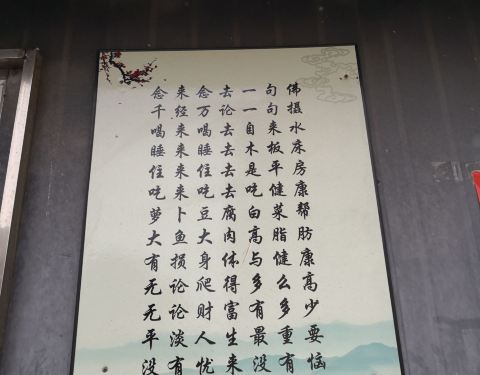 念来念去一句佛
千经万论一句摄
喝来喝去自来水
睡来睡去木板床
住来住去是平房
吃来吃去吃健康
萝卜豆腐白菜帮
大鱼大肉高脂肪
有损身体与健康
无论爬得多么高
无论财富有多少
平淡人生最重要
没有忧来没有恼